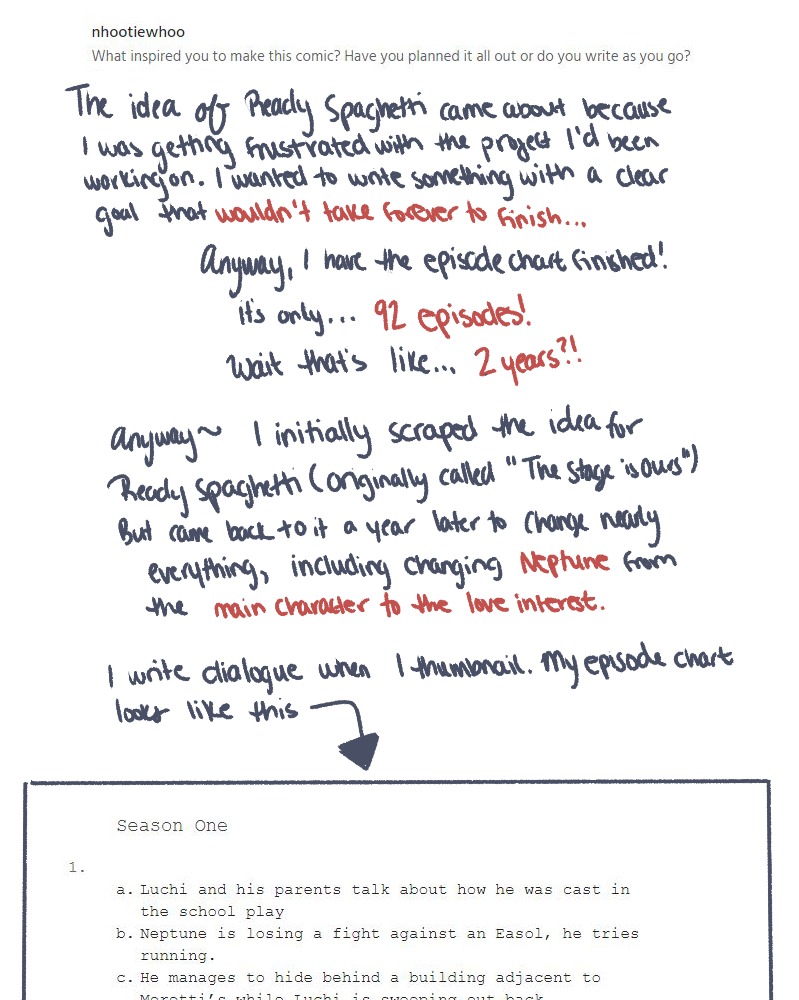 nhootiewhoo
What inspired you to make this comic? Have you planned it all out or do you write as you go?
The idea of Ready Spaghetti came about because
I was getting frustrated with the project I'd been
working on. I wanted to write something with a clear
goal that wouldn't take forever to finish...
Anyway, I have the episode chart finished!
It's only... 92 episodes!
Wait that's like... 2 years?!
Anyway~ I initially scraped the idea for
Ready Spaghetti (originally called "The Stage is Ours")
But came back to it a year later to change nearly
everything, including changing Neptune from
the main character to the love interest.
I write dialogue when I thumbnail. My episode chart
looks like this
Season One
1.
a. Luchi and his parents talk about how he was cast in
the school play
b. Neptune is losing a fight against an Easol, he tries
running.
c. He manages to hide behind a building adjacent to
Moretti's while Luchi is sweeping out back